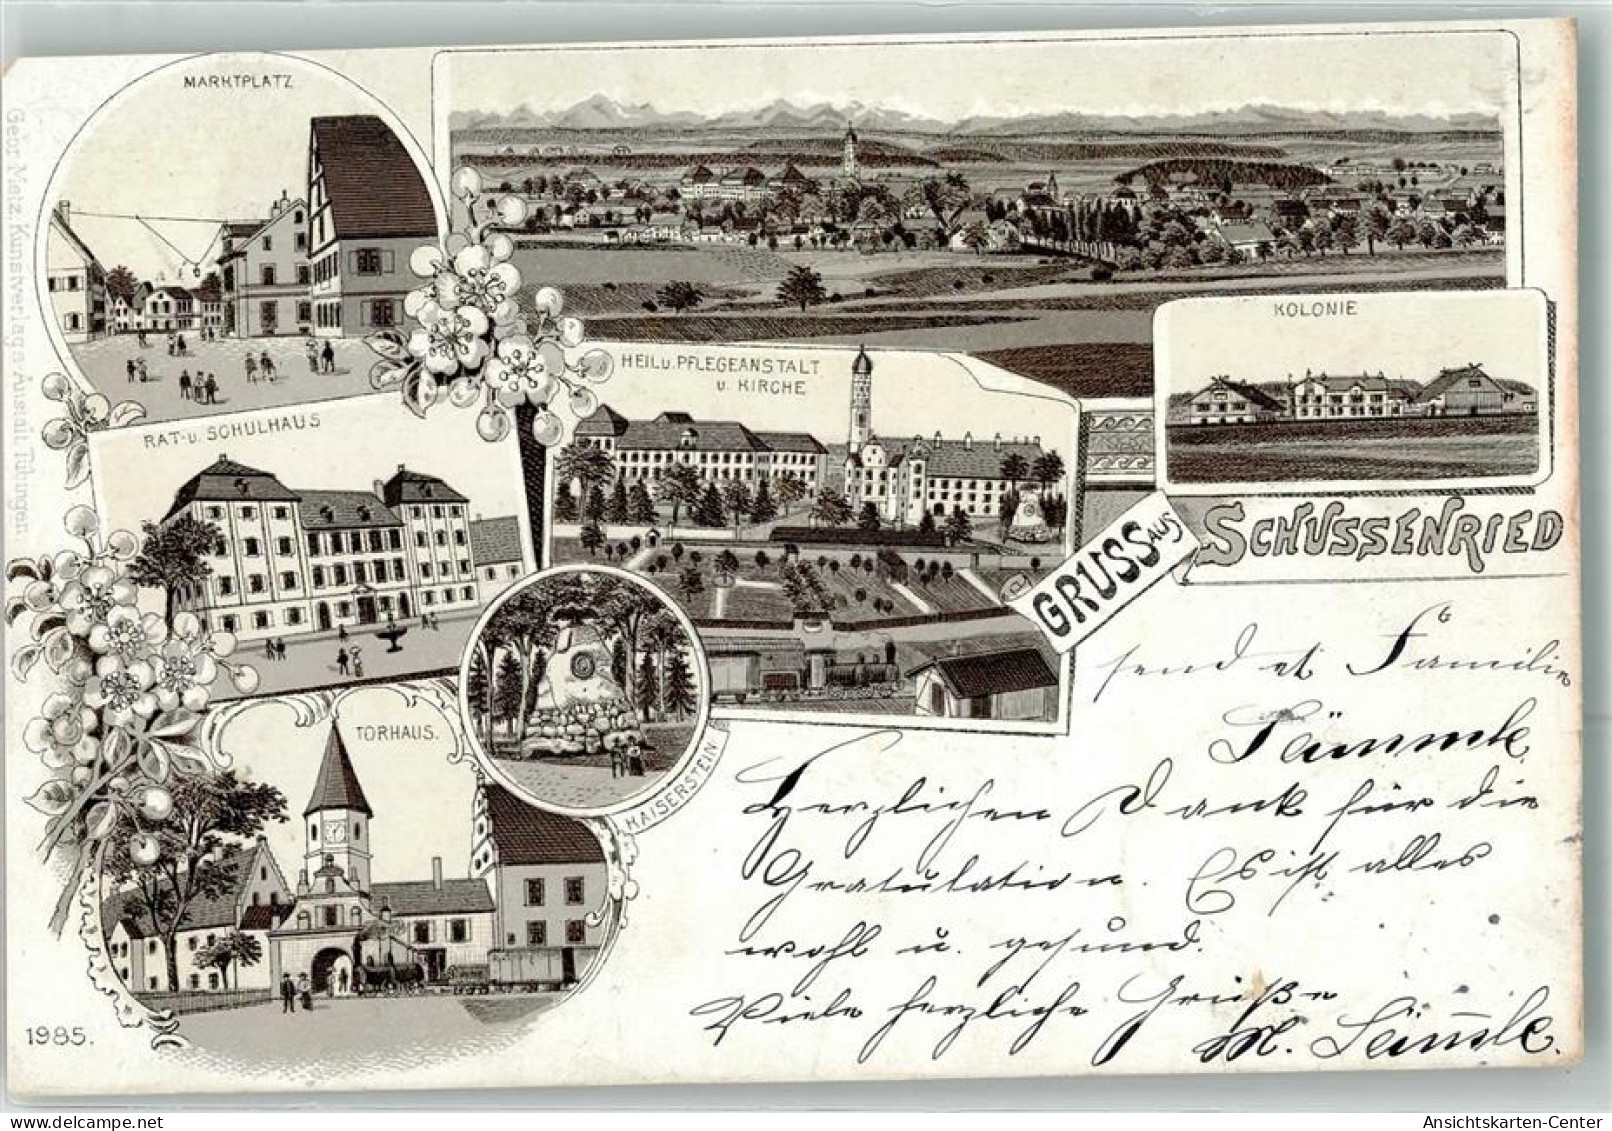 MARKTPLATZ
KOLONIE
HEIL u. PFLEGEANSTALT
u. KIRCHE
RAT- u. SCHULHAUS
GRUSS AUS
SCHUSSENRIED
TORHAUS.
KAISERSTEIN
Gebr. Metz, Kunstverlags-Anstalt, Tübingen.
sendet Familie
Herzlichen Dank für die
Gratulation. Es ist alles
wohl u. gesund.
Viele herzliche Grüße
M.
1985.
Ansichtskarten-Center